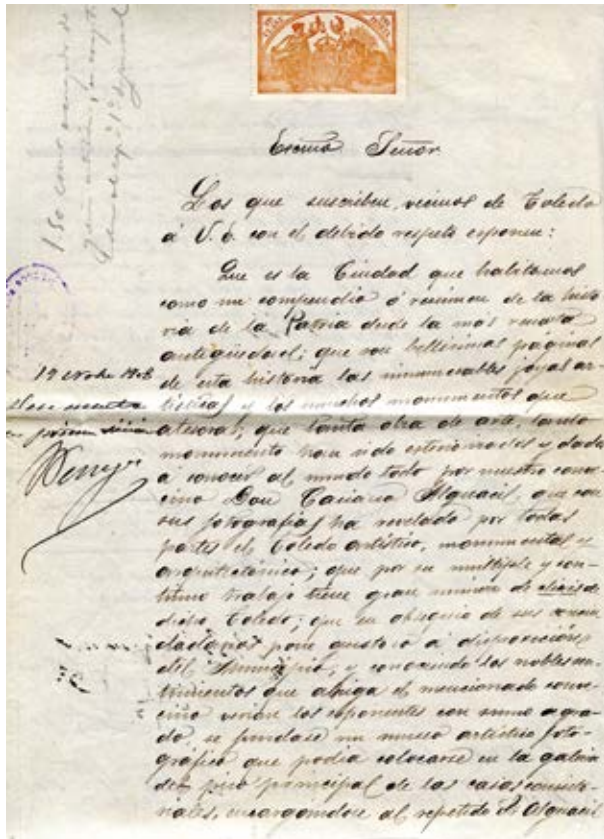 Excmo Señor
Los que suscriben, vecinos de Toledo
á V. E. con el debido respeto exponen:
Que es la Ciudad que habitamos
como un compendio ó resumen de la histo
ria de la Patria desde la más remota
antigüedad; que son bellísimas páginas
de esta historia las innumerables joyas ar-
tísticas y los muchos monumentos que
atesora; que tanta obra de arte, tanto
monumento han sido exteriorizados y dados
á conocer al mundo todo por nuestro conve
cino Don Casiano Alguacil, que con
sus fotografías ha revelado por todas
partes el Toledo artístico, monumental y
arquitectónico; que por su múltiple y con-
tínuo trabajo tiene gran número de clichés de
dicho Toledo; que en obsequio de sus conciu
dadanos pone gustoso á disposición
del Municipio, y conociendo los nobles sen-
timientos que abriga el mencionado conve
cino verían los exponentes con sumo agra
do se fundase un museo artístico foto-
gráfico que podía colocarse en la galería
del piso principal de las casas consisto-
riales, encargándose al repetido Sr Alguacil
19 1908
Dese cuenta
en primera sesión